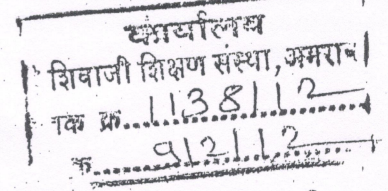 कार्यालय
शिवाजी शिक्षण संस्था, अमराव
क क्र. 1138/12
क. 9/2/12